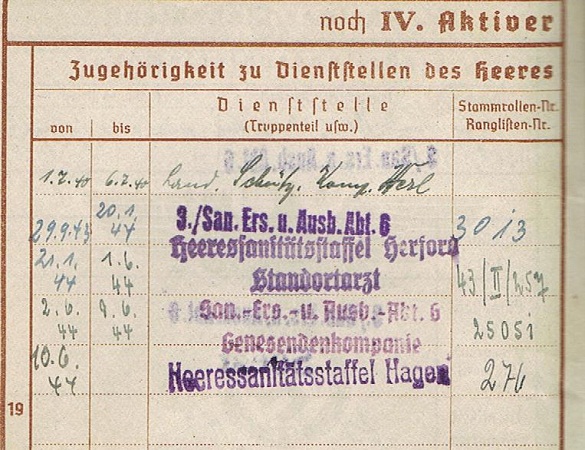 noch IV. Aktiver
Zugehörigkeit zu Dienststellen des Heeres
von bis Dienststelle (Truppenteil usw.) Stammrollen-Nr. Ranglisten-Nr.
1.7.40 6.7.40 Land. Schütz. Komp. Werl
29.9.43 20.1.44 3./San. Ers. u. Ausb. Abt. 6 3013
21.1.44 1.6.44 Heeressanitätsstaffel Herford
Standortarzt 43/II/257
2.6.44 9.6.44 San.-Ers.-u. Ausb.-Abt. 6
Genesendenkompanie 2505i
10.6.44 Heeressanitätsstaffel Hagen 276
19